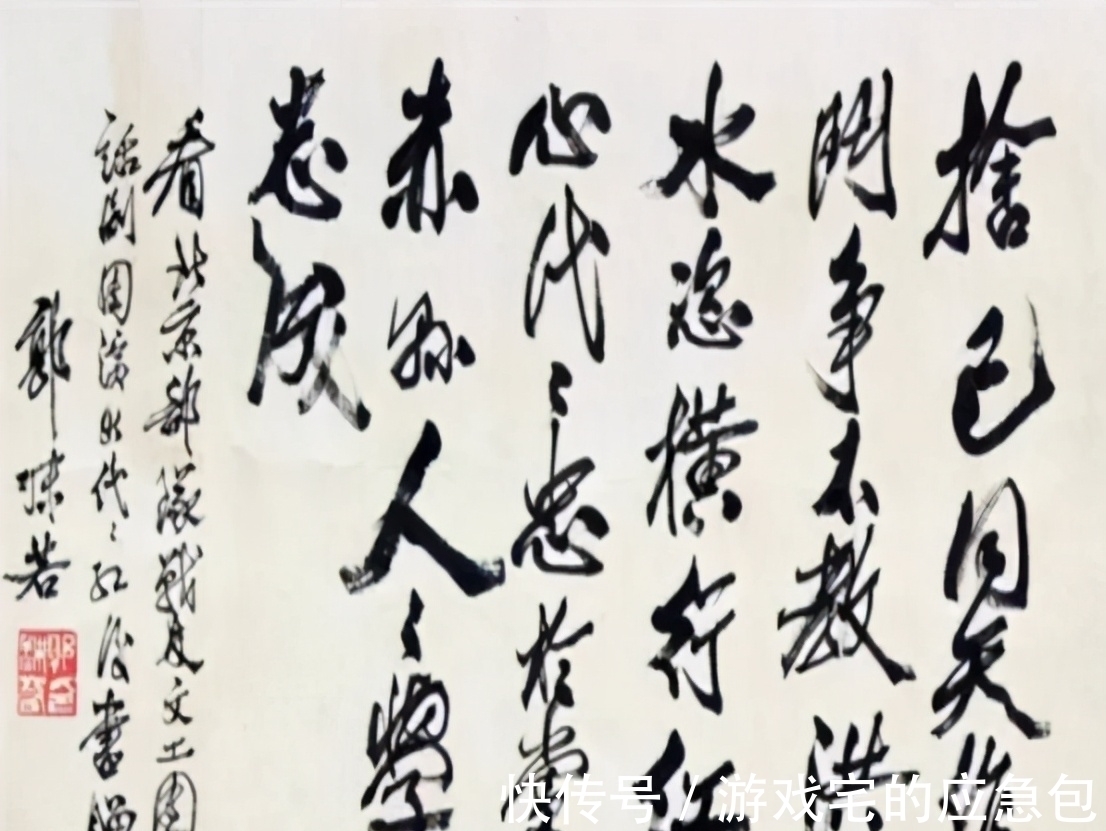 捨己同天
鬥爭不教洪
水恣橫行紅
心代〻忠於黨
赤縣人〻學
成
看北京部隊戰友文工團
話劇團演出代〻紅後書贈
郭沫若
快传号 / 游戏宅的应急包